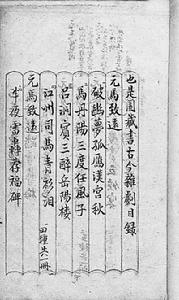 也是園藏書古今雜劇目錄
元馬致遠
破幽夢孤鴈漢宮秋
馬丹陽三度任風子
呂洞賓三醉岳陽樓
江州司馬青衫淚
田種共一冊
元馬致遠
半夜雷轟荐福碑